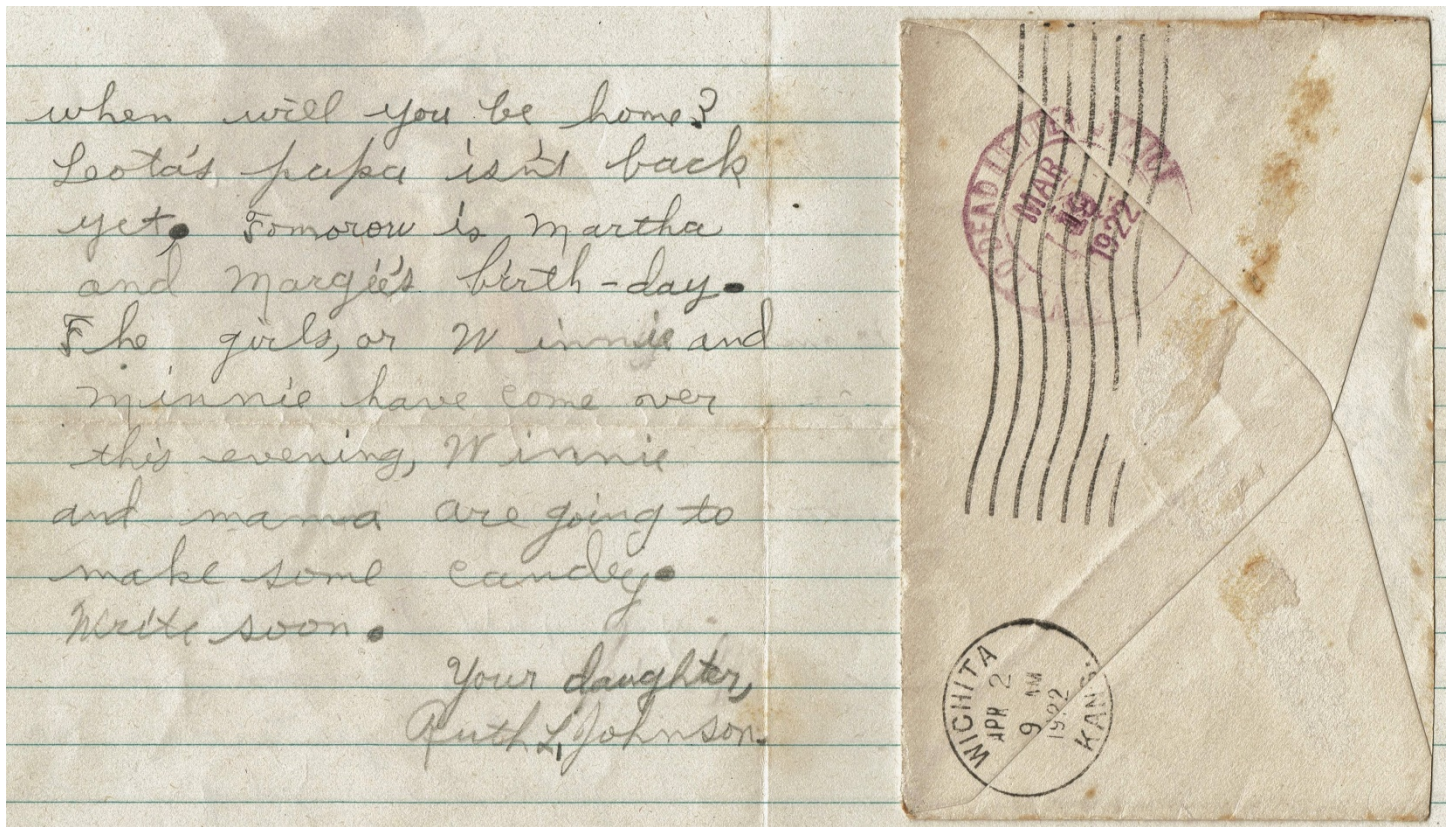 when will you be home?
Leota's papa isn't back
yet. Tomorow is Martha
and Margie's birth-day.
The girls, or Winnie and
minnie have come over
this evening, Winnie
and mama are going to
make some candey.
Write soon.
Your daughter,
Ruth L. Johnson.
MAR
1922
WICHITA
APR 2
9 AM
1922
KANS